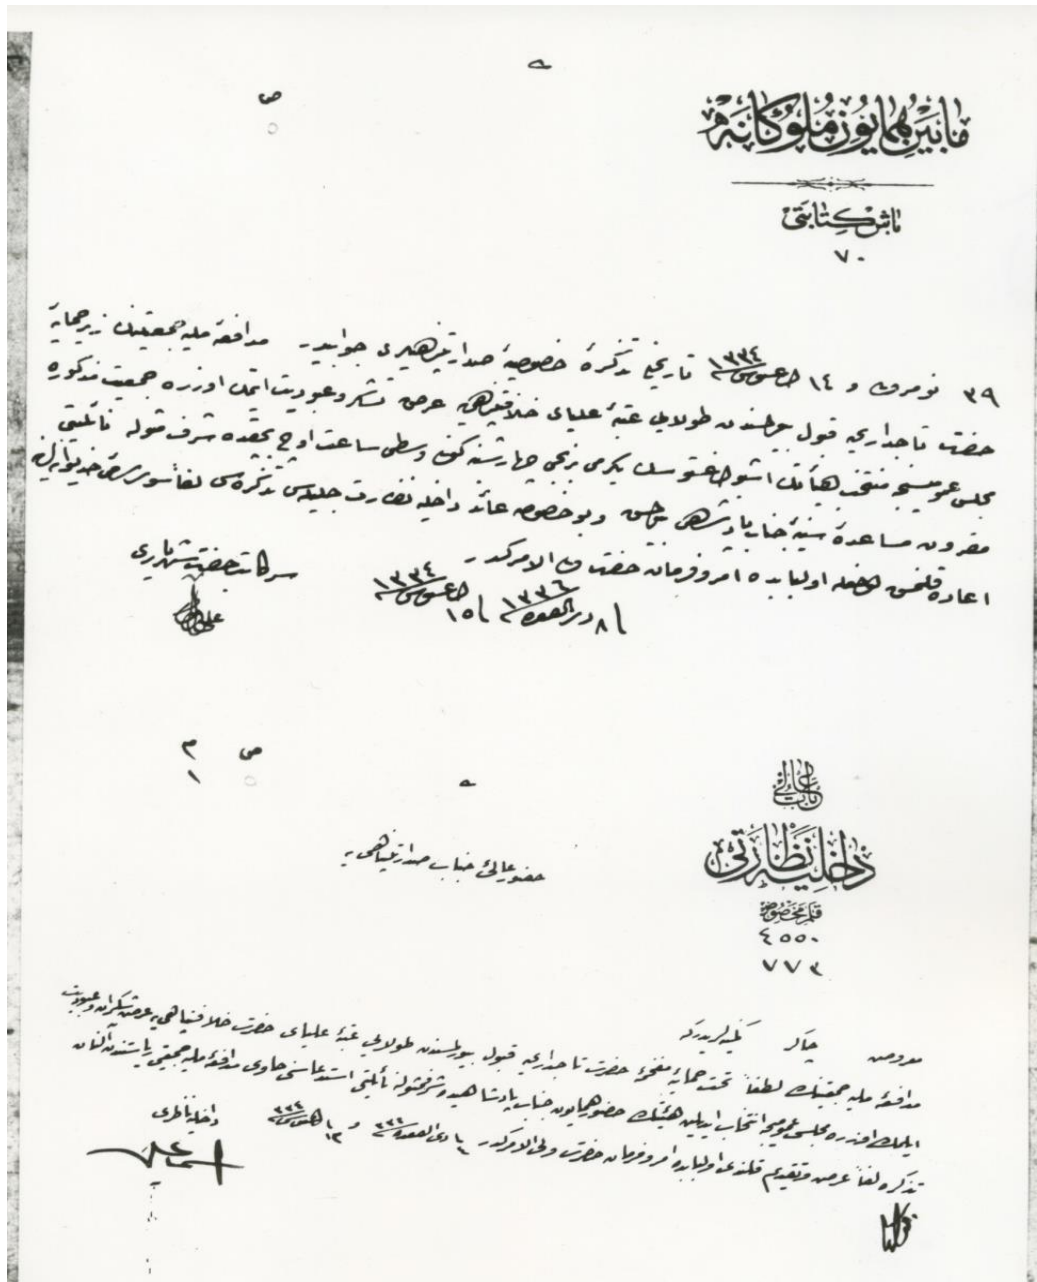 مابین همایون ملوکانه
باش کتابتی
٧٠
٣٩ نومرولی و ١٤ اغستوس ١٣٣٤ تاریخلی تذکرهٔ خصوصیهٔ صدارتپناهیلری جوابیدر مدافعهٔ ملیه جمعیتنك زیر حمایهٔ
حضرت تاجداری یه قبول بیورلمسندن طولایی عتبهٔ علیای خلافتپناهی یه عرض تشکر و عبودیت ایتمك اوزره جمعیت مذکوره
مجلس عمومیسنجه منتخب هیأتك اشبو اغستوسك یکرمی برنجی چهارشنبه کونی وسطی ساعت اوچ بچقده شرف مثوله نائلیتی
مقرون مساعدهٔ سنیهٔ جناب پادشاهی و بو خصوصه عائد داخلیه نظارت جلیله سی تذکره سی لفاً
اعاده قلنمش اولمغله اولبابده امر و فرمان حضرت ولی الامرکدر
٨ ذی القعده ١٣٣٦ ١٥ اغستوس ١٣٣٤
سرکاتب حضرت شهریاری
علی
باب عالی
داخلیه نظارتی
قلم مخصوص
٤٥٥٠
٧٧٣
حضور عالیٔ جناب صدارتپناهی یه
معروض چاکر کمینه لریدرکه
مدافعهٔ ملیه جمعیتنك لطفاً تحت حمایهٔ مفخمهٔ حضرت تاجداری یه قبول بیورلمسندن طولایی عتبهٔ علیای حضرت خلافتپناهی یه عرض شکران و عبودیت
ایلمك اوزره مجلس عمومیسنجه انتخاب ایدیلن هیئتك حضور همایون جناب پادشاهیده شرفمثوله نائلیتی استدعاسنی حاوی مدافعهٔ ملیه جمعیتی ریاستندن آلنان
تذکره لفاً عرض و تقدیم قلندی اولبابده امر و فرمان حضرت ولی الامرکدر ذی القعده ٣٣٦ و ١٣ اغستوس ٣٣٤
داخلیه ناظری
اسماعیل